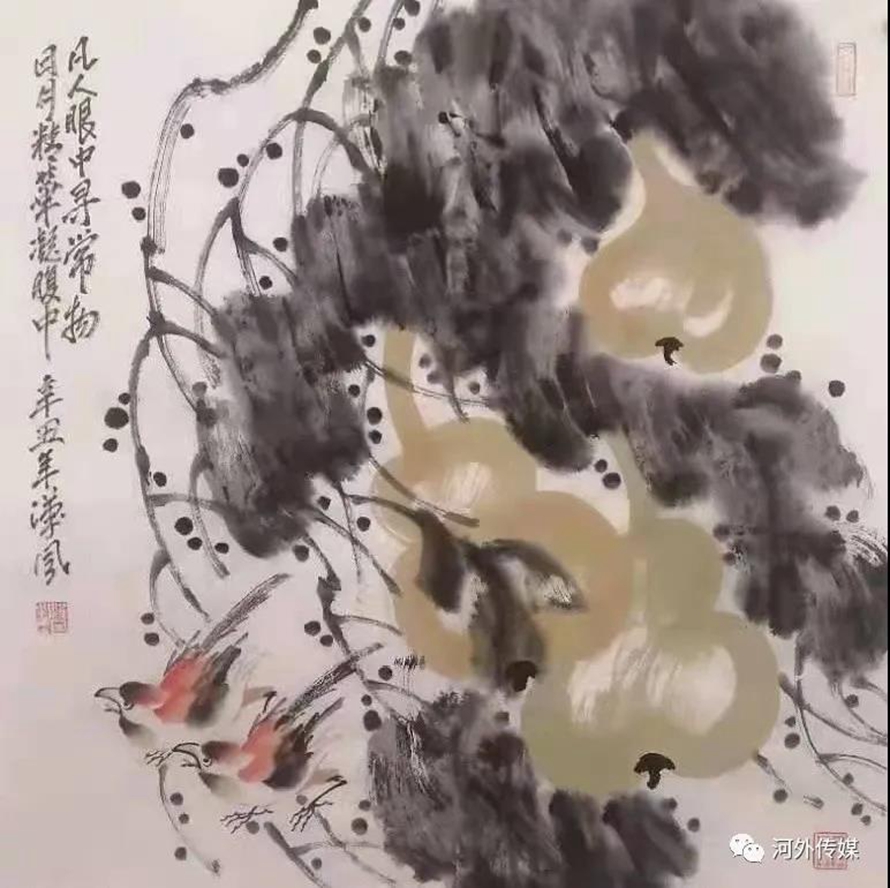 凡人眼中寻常物
日月精华凝腹中 辛丑年漢風
河外传媒